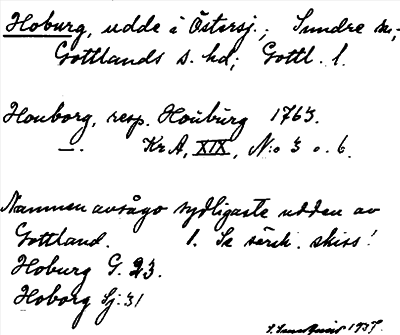 Hoburg, udde i Östersj., Sundre sn,
Gottlands s. hd; Gottl. l.
Houborg, resp. Houburg 1763.
—. KrA, XIX, N:o 3 o. 6.
Namnen avsågo sydligaste udden av
Gottland. 1. Se särsk. skiss!
Hoburg G. 23.
Hoborg Sj: 31
1937.